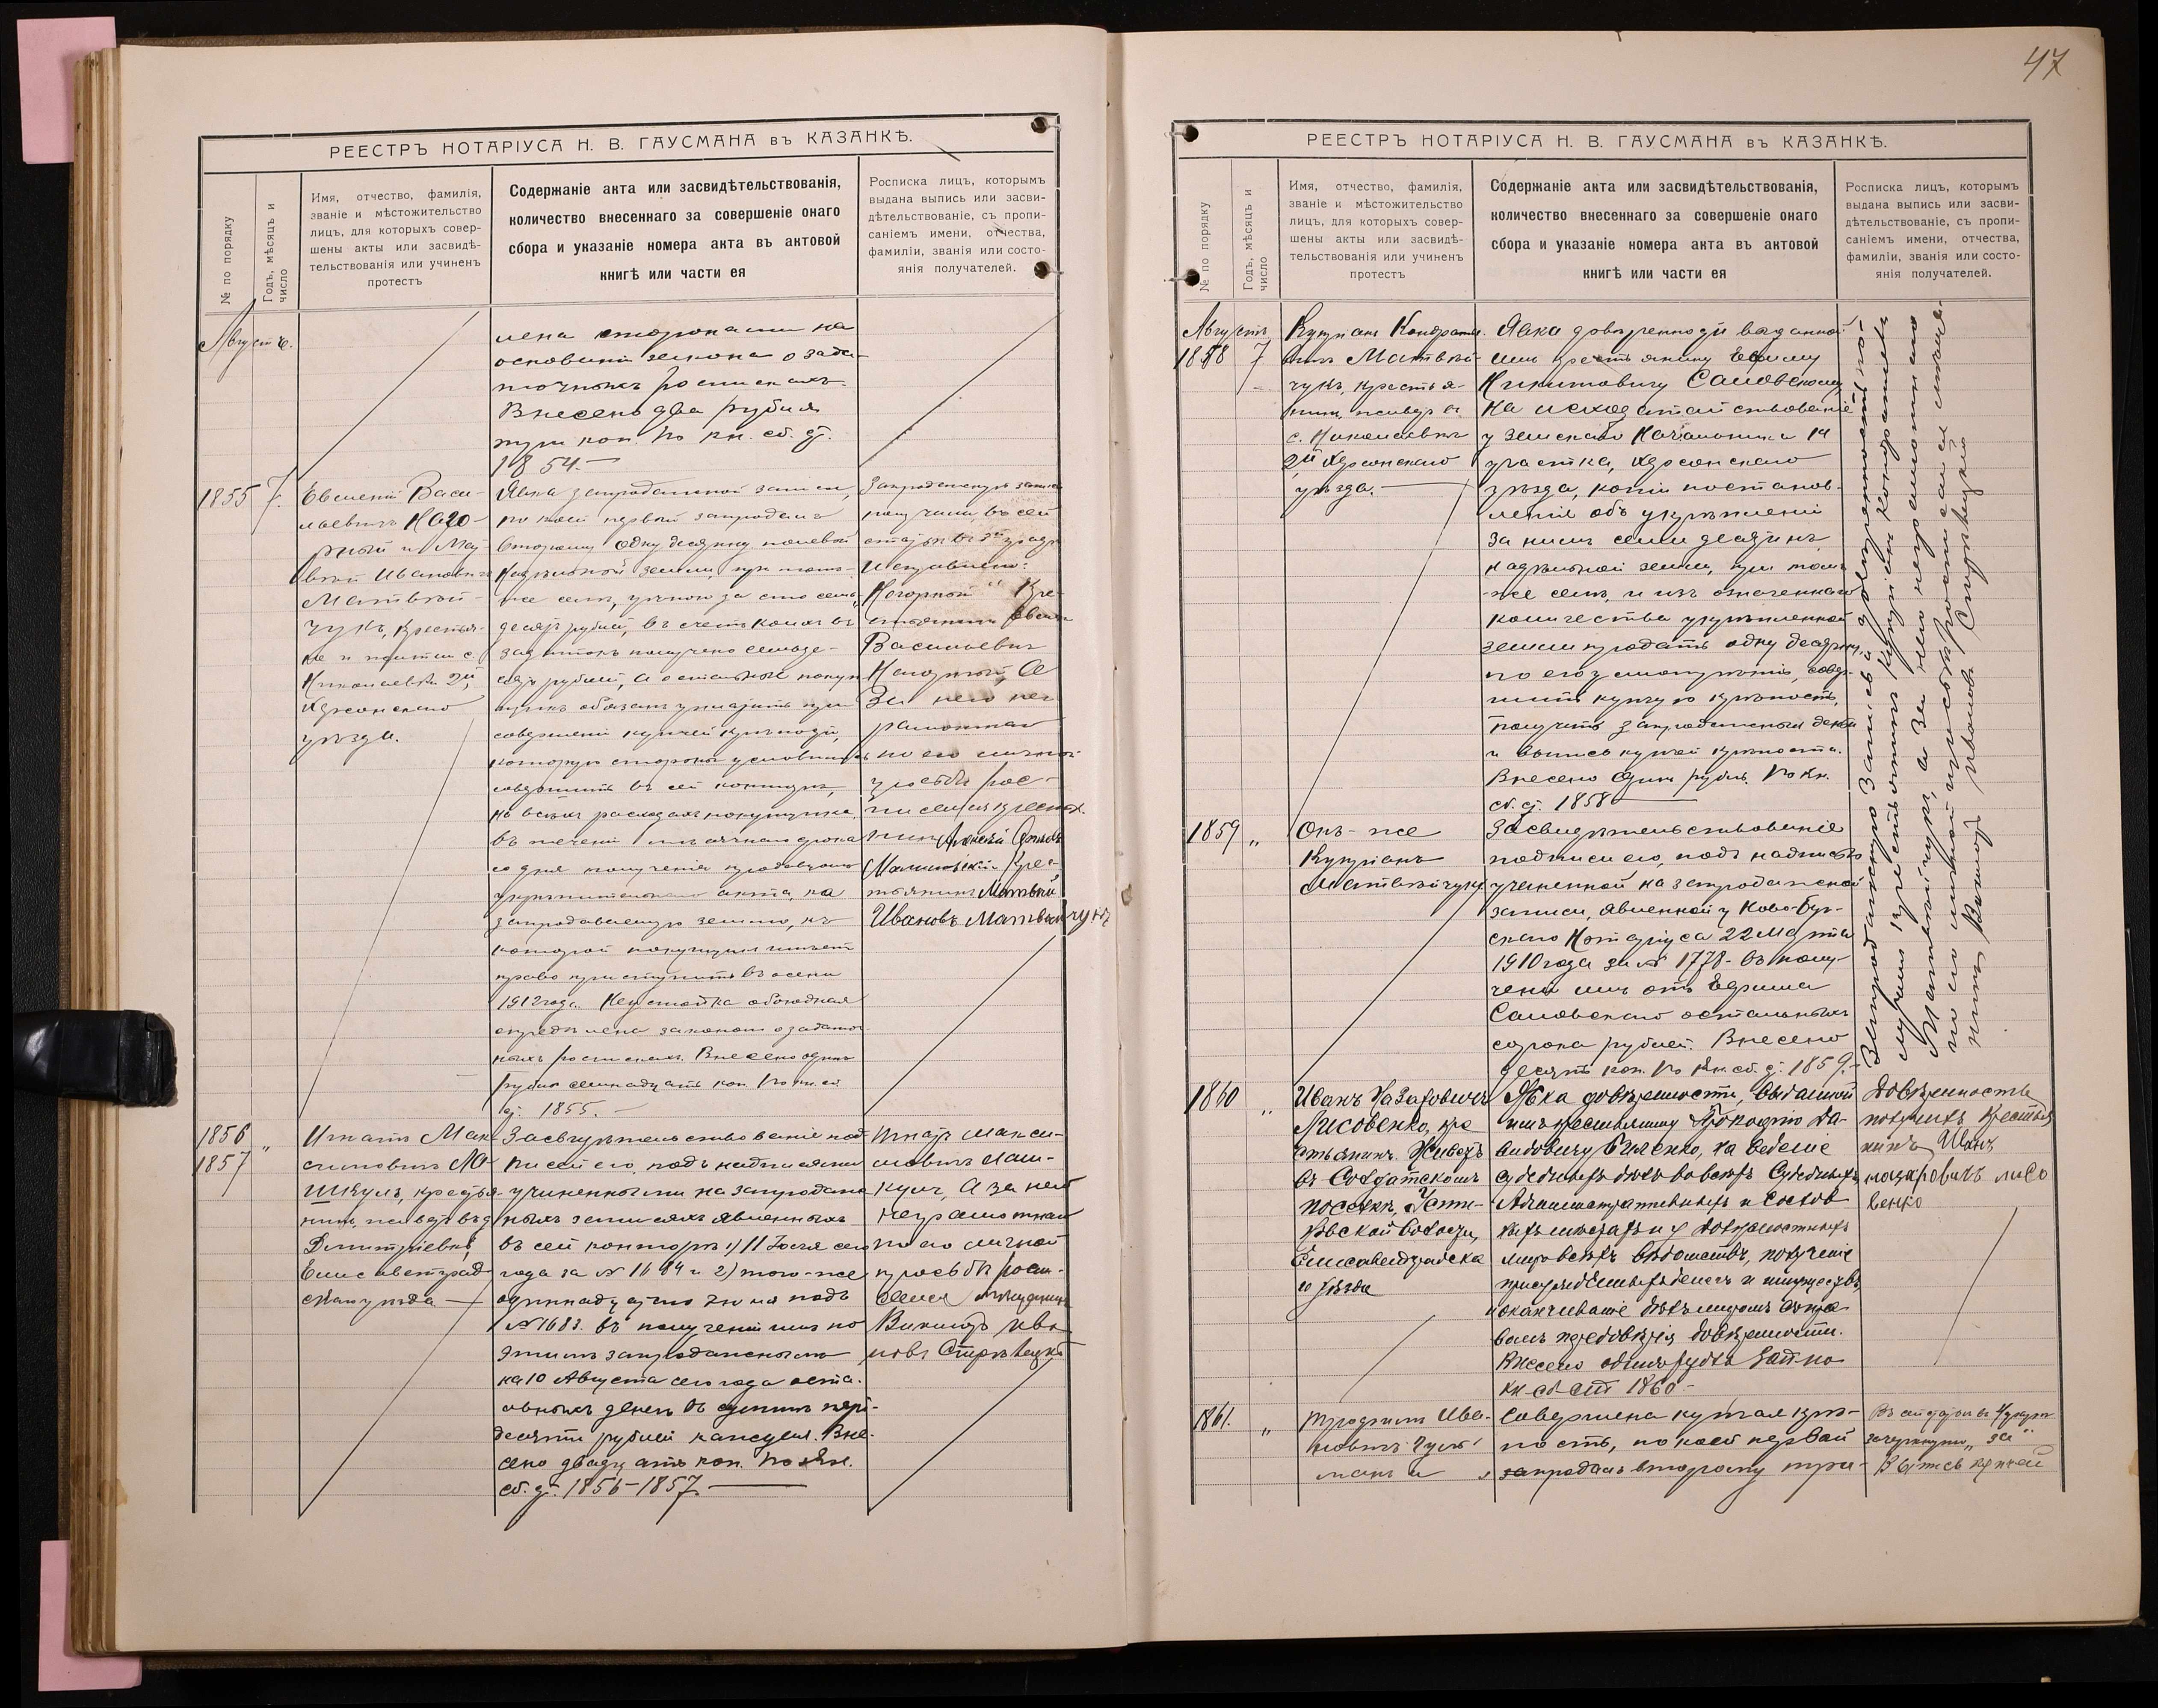 РЕЕСТРЪ НОТАРІУСА Н. В. ГАУСМАНА въ КАЗАНКѢ.
№ по порядку
Годъ, мѣсяцъ и
число
Имя, отчество, фамилія,
званіе и мѣстожительство
лицъ, для которыхъ совер-
шены акты или засвидѣ-
тельствованія или учиненъ
протестъ
Содержаніе акта или засвидѣтельствованія,
количество внесеннаго за совершеніе онаго
сбора и указаніе номера акта въ актовой
книгѣ или части ея
Росписка лицъ, которымъ
выдана выпись или засви-
дѣтельствованіе, съ пропи-
саніемъ имени, отчества,
фамиліи, званія или состо-
янія получателей.
Августъ.
лена сторонами на
основаніи закона о зада-
точныхъ роспискахъ.
Внесено два рубля
кон. По кн. сб. ст.
1854.
1855 7.
Евменій Васи-
льевичъ Наго-
рный и Мат
вѣй Ивановичъ
Матвѣй-
чукъ, крестья-
не и жители с.
Николаевки 2й,
Херсонскаго
уѣзда.
Явка запродажной записи,
по коей первый запродалъ
второму одну десятину полевой
надѣльной земли, при томъ-
же селѣ, цѣною за сто семь-
десятъ рублей, въ счетъ коихъ въ
задатокъ получено семьде-
сятъ рублей, а остальные покуп
щикъ обязанъ уплатить при
совершеніи купчей крѣпости,
которую стороны условились
совершить въ сей конторѣ,
на всѣхъ расходахъ покупщика,
въ теченіи мѣсячнаго срока
со дня полученія продавцомъ
укрѣпительнаго акта, на
запродаваемую землю, къ
которой покупщикъ имѣетъ
право приступить въ осени
1912 года. Неустойка обоюдная
опредѣлена закономъ о задаточ-
ныхъ роспискахъ. Внесено одинъ
рубль семнадцать коп. По кн. сб.
ст. 1855.
Запродажную запись
получили, въ сей
статьѣ въ
исправлено:
Нагорный Кре-
стьянинъ Евмен
Васильевъ
Нагорный, а
за него не-
грамотнаго
по его личной
просьбѣ рос-
писался крестья.
нинъ
Крес-
тьянинъ Матвѣй
Ивановъ Матвѣйчукъ
1856
1857
„
Игнатъ Мак
симовичъ Ла
шкулъ, крестья-
нинъ, живетъ въ д
Дмитріевкѣ,
Елисаветград
скаго уѣзда
Засвидѣтельствованіе под
писей его, подъ надписями
учиненными на запродаж
ныхъ записяхъ явленныхъ
въ сей конторѣ 1) 11 Іюля сего
года за № 1684 и 2) того-же
одиннадцатаго Іюля подъ
№ 1683. въ полученіи имъ по
этимъ запродажнымъ
на 10 Августа сего года оста.
авныхъ денегъ въ суммѣ пяти-
десяти рублей каждая. Вне-
сено двадцать коп. По кн.
сб. ст. 1856-1857.
Игнатъ Макси-
мовичъ Лаш-
кулъ, а за него
неграмотнаго
по его личной
просьбѣ роспи-
сался
Викторъ Ива
новъ Стржевецкій
47
РЕЕСТРЪ НОТАРІУСА Н. В. ГАУСМАНА въ КАЗАНКѢ.
№ по порядку
Годъ, мѣсяцъ и
число
Имя, отчество, фамилія,
званіе и мѣстожительство
лицъ, для которыхъ совер-
шены акты или засвидѣ-
тельствованія или учиненъ
протестъ
Содержаніе акта или засвидѣтельствованія,
количество внесеннаго за совершеніе онаго
сбора и указаніе номера акта въ актовой
книгѣ или части ея
Росписка лицъ, которымъ
выдана выпись или засви-
дѣтельствованіе, съ пропи-
саніемъ имени, отчества,
фамиліи, званія или состо-
янія получателей.
Августъ
1858 7
Купріанъ Кондратье.
вичъ Матвѣй-
чукъ, крестья-
нинъ, живетъ въ
с. Николаевкѣ
2й Херсонскаго
уѣзда.
Явка довѣренности выданной
имъ крестьянину Ефиму
Никитовичу Саловскому,
на исходатайствованіе
у Земскаго Начальника 14
участка, Херсонскаго
уѣзда, копіи постанов-
ленія объ укрѣпленіи
за нимъ семи десятинъ
надѣльной земли, при томъ
же селѣ, и изъ означеннаго
количества укрѣпленной
земли продать одну десятину,
по его усмотрѣнію, совер-
шить купчую крѣпость,
получить запродажныя деньги
и выпись купчей крѣпости.
Внесено одинъ рубль. По кн.
сб. ст. 1858
Запродажную запись и довѣренность по-
лучилъ крестьянинъ Купріанъ Кондратьевъ
Матвѣйчукъ, а за него неграмотнаго
по его личной просьбѣ росписался мѣща-
нинъ Викторъ Ивановъ Стржевецкій
1859 „
Онъ-же
Купріанъ
Матвѣйчукъ
Засвидѣтельствованіе
подписи его, подъ надписью
учиненной на запродажной
записи, явленной у Ново-Буг-
скаго Нотаріуса 22 Марта
1910 года за № 1778 - въ полу-
ченіи имъ отъ Ефима
Саловскаго остальныхъ
сорока рублей. Внесено
десять коп. По кн. сб. ст. 1859.
1860 „
Иванъ Назаровичъ
Лисовенко, кре
стьянинъ. Живетъ
въ Солдатскомъ
поселкѣ, Усти-
новской волости,
Елисаветградска
го уѣзда
Явка довѣренности, выданной
имъ крестьянину Прокофію Да-
видовичу на веденіе
судебныхъ дѣлъ во всѣхъ Судебныхъ,
Административныхъ и Сослов
ныхъ
вѣдомствъ, полученіе
присужденныхъ денегъ и имуществъ,
оканчиваніе дѣлъ миромъ съ пра
вомъ передовѣрія довѣренности.
Внесено одинъ рубль по
кн сб ст 1860 -
Довѣренность
получилъ крестья
нинъ Иванъ
Назаровичъ Лисо
венко
1861. „
Трофимъ Ива-
новичъ
Совершена купчая крѣ-
пость, по коей первый
запродалъ второму три-
Въ сей статьѣ въ
зачеркнуто „за“
Выпись купчей